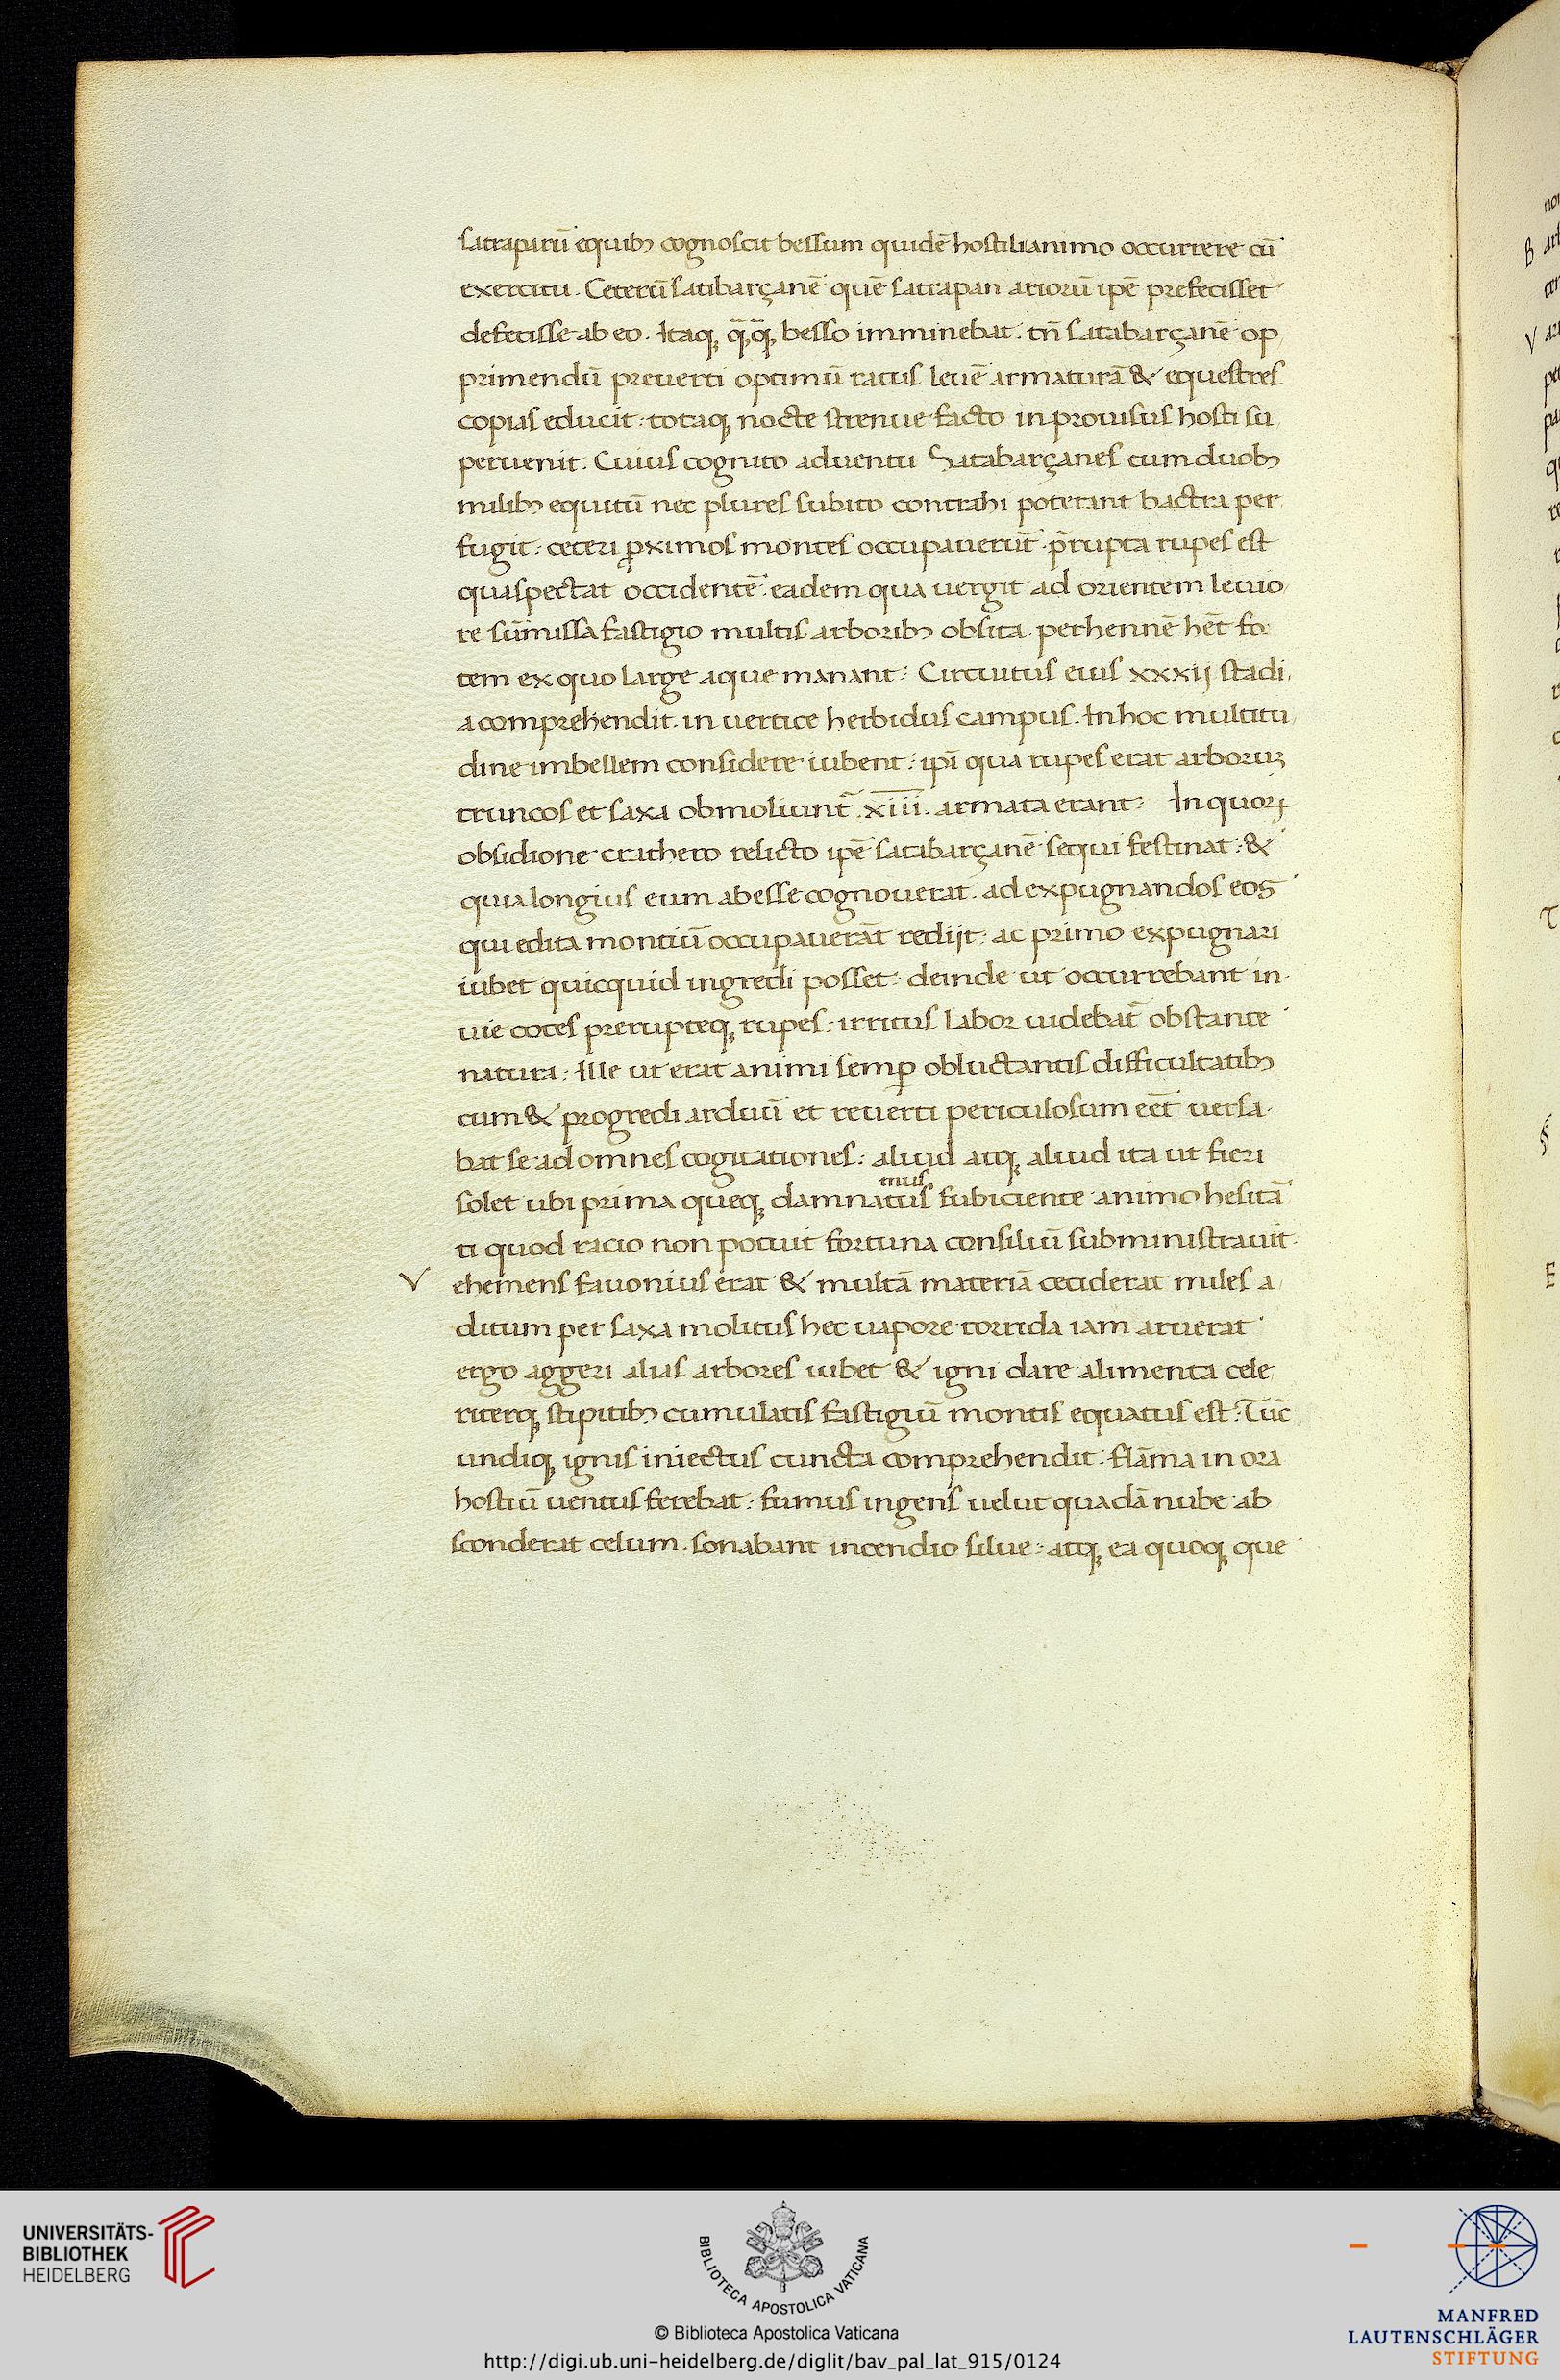 satraparū equibꝫ cognoscit bessum quidē hostilianimo occurrere cū
exercitu. Ceterū satibarçanē quē satrapan ariorū ipē prefecisset
defecisse ab eo. Itaqꝫ q̄q̄ꝫ besso imminebat. tn̄ satabarçanē op
primendū preuerti optimū ratus leuē armaturā & equestres
copias educit: totaqꝫ nocte strenue facto in prouisus hosti su
peruenit. Cuius cognito aduentu Satabarçanes cum duobꝫ
milibꝫ equitū nec plures subito contrahi poterant bactra per
fugit: ceteri ꝓximos montes occupauerūt. p̄rupta rupes est
qua spectat occidentē: eadem qua uergit ad orientem leuio
re sūmissa fastigio multis arboribꝫ obsita. perhennē hēt fo
tem ex quo large aque manant: Circuitus eius xxxij stadi
a comprehendit. in uertice herbidus campus. In hoc multitu
dine imbellem considere iubent: ipi qua rupes erat arboruꝫ
truncos et saxa obmoliunt̄. xiii. armata erant: In quoꝝ
obsidione crathero relicto ipē satabarçanē sequi festinat: &
quia longius eum abesse cognouerat. ad expugnandos eos
qui edita montiū occupauerāt redijt: ac primo expugnari
iubet quicquid ingredi posset: deinde ut occurrebant in
uie cotes prerupteqꝫ rupes: irritus labor uidebat̄ obstante
natura: Ille ut erat animi semꝑ obluctantis difficultatibꝫ
cum & progredi arduū et reuerti periculosum eēt uersa
bat se ad omnes cogitationes: aliud atqꝫ aliud ita ut fieri
mus
solet ubi prima queqꝫ damnatus subiciente animo hesitā
ti quod racio non potuit fortuna consiliū subministrauit
V ehemens fauonius erat & multā materiā ceciderat miles a
ditum per saxa molitus hec uapore torrida iam aruerat
ergo aggeri alias arbores iubet & igni dare alimenta cele
riterqꝫ stipitibꝫ cumulatis fastigiū montis equatus est: Tūc
undiqꝫ ignis iniectus cuncta comprehendit: flāma in ora
hostiū uentus ferebat: fumus ingens uelut quadā nube ab
sconderat celum. sonabant incendio silue: atqꝫ ea quoqꝫ que
UNIVERSITÄTS-
BIBLIOTHEK
HEIDELBERG
BIBLIOTECA APOSTOLICA VATICANA
© Biblioteca Apostolica Vaticana
http://digi.ub.uni-heidelberg.de/diglit/bav_pal_lat_915/0124
MANFRED
LAUTENSCHLÄGER
STIFTUNG